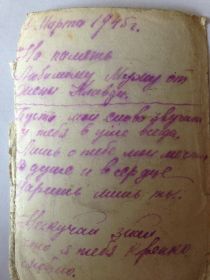 Марта 1945 г.
На память
Любимому Мужу от
Жены Клавди.
Пусть мои слова звучат
у тебя в уме всегда.
Лишь о тебе мои мечты
В душе и в сердце
Царишь лишь ты.
Не скучай знай
что я тебя крепко
люблю.